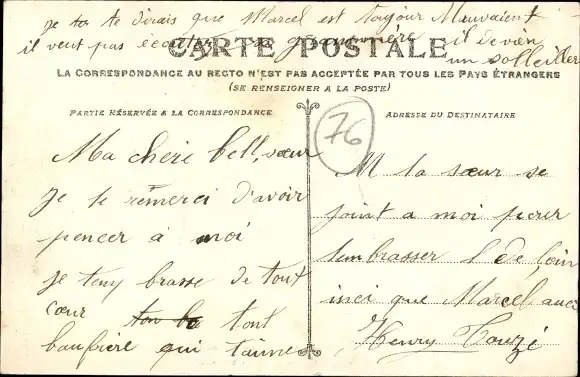 je ta te dirais que Marcel est toujour Mauvaient
il veut pas écouter sa grammère il devien
un solleiller
CARTE POSTALE
LA CORRESPONDANCE AU RECTO N'EST PAS ACCEPTÉE PAR TOUS LES PAYS ÉTRANGERS
(SE RENSEIGNER A LA POSTE)
PARTIE RÉSERVÉE A LA CORRESPONDANCE
ADRESSE DU DESTINATAIRE
76
Ma chère bell, sœur
Je te remerci d'avoir
pencer à moi
je teny brasse de tout
cœur ton
baufière qui t'aime
M ta sœur se
joint a moi pour
tenbrasser de loin
inci que Marcel
Henry Touzé